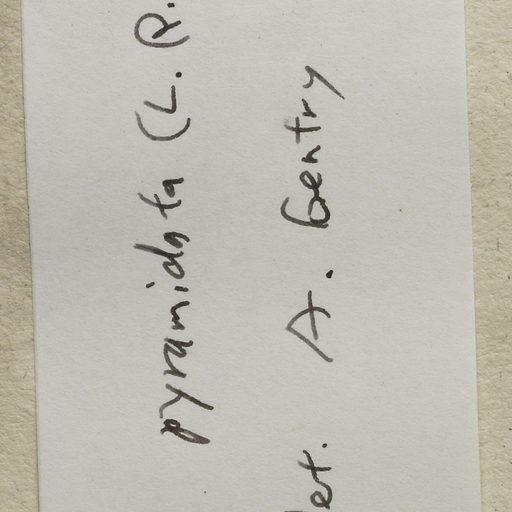 pyramidata (L. R.
det. A. Gentry